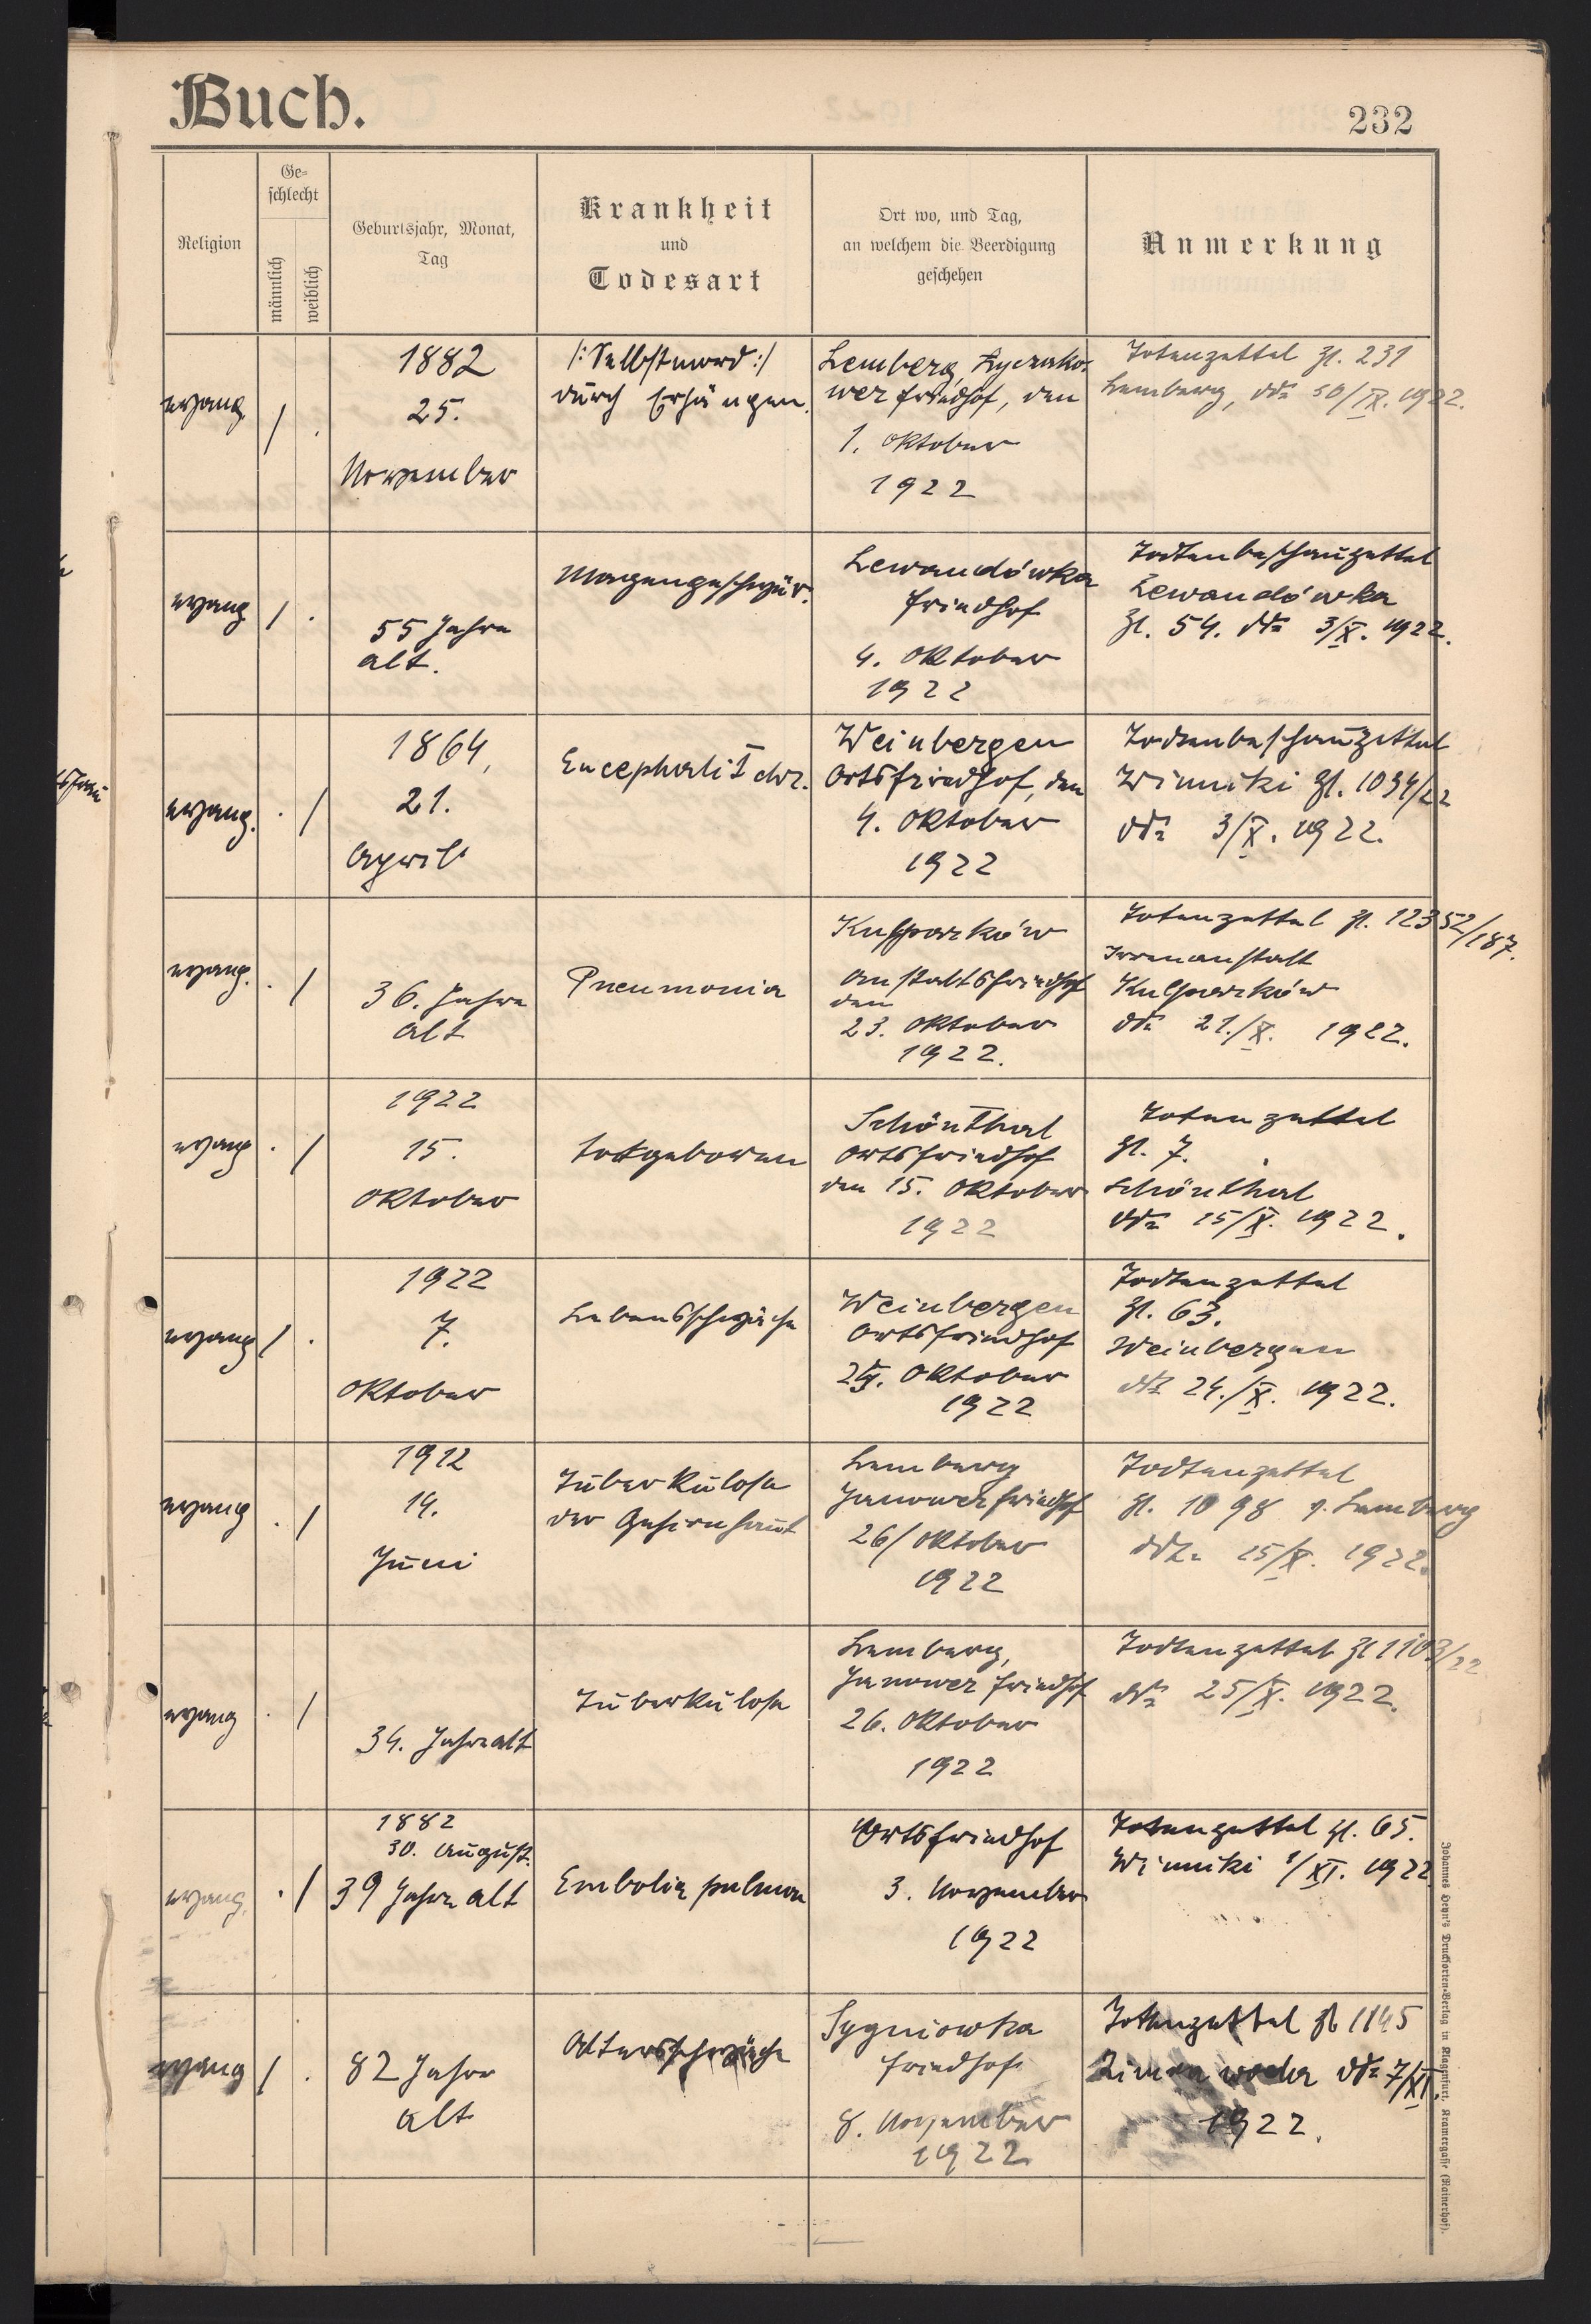 Buch.
232
Religion
Ge-
schlecht
männlich
weiblich
Geburtsjahr, Monat,
Tag
Krankheit
und
Todesart
Ort wo, und Tag,
an welchem die Beerdigung
geschehen
Anmerkung
evang
/ .
1882
25.
November
/: Selbstmord :/
durch Erhängen.
Lemberg, Łyczako-
wer Friedhof, den
1. Oktober
1922
Totenzettel Zl. 231
Lemberg, ddo 30/IX. 1922.
evang
/ .
55 Jahre
alt.
Magengeschwür.
Lewandówka
Friedhof
4. Oktober
1922
Todtenbeschauzettel
Lewandówka
Zl. 54. ddo 3/X. 1922.
evang.
. /
1864,
21.
April
Ortsfriedhof, den
Weinbergen
4. Oktober
1922
Todtenbeschauzettel
Winniki Zl. 1034/22
ddo 3/X. 1922.
evang.
. /
36. Jahre
alt
Pneumonia
Kulparków
Anstaltsfriedhof
den
23. Oktober
1922.
Totenzettel Zl. 12352/187.
Irrenanstalt
Kulparków
ddo 21./X. 1922.
evang
. /
1922
15.
Oktober
totgeboren
Schönthal
Ortsfriedhof
den 15. Oktober
1922
Totenzettel
Zl. 7.
Schönthal
ddo 15/X. 1922.
evang
/ .
1922
7.
Oktober
Lebensschwäche
Weinbergen
Ortsfriedhof
Oktober
1922
Todtenzettel
Zl. 63.
Weinbergen
ddo 24./X. 1922.
evang
. /
1912
14.
Juni
Tuberkulose
der Gehirnhaut
Lemberg
Janower Friedhof
26/ Oktober
1922
Todtenzettel
Zl. 1098 Lemberg
ddo 25/X. 1922.
evang
. /
34. Jahre alt
Tuberkulose
Lemberg,
Janower Friedhof
26. Oktober
1922
Todtenzettel Zl 1103/22
ddo 25/X. 1922.
evang.
. /
1882
30. August.
39 Jahre alt
Embolia pulmon
Ortsfriedhof
3. November
1922
Totenzettel Zl. 65.
Winniki 1/XI. 1922
evang
/ .
82 Jahre
alt
Altersschwäche
Sygniowka
Friedhof
8. November
1922
Totenzettel Zl 1145
Zimna woda ddo 7/XI.
1922.
Johannes Heyn's Drucksorten-Verlag in Klagenfurt, Kramergasse (Rainerhof).